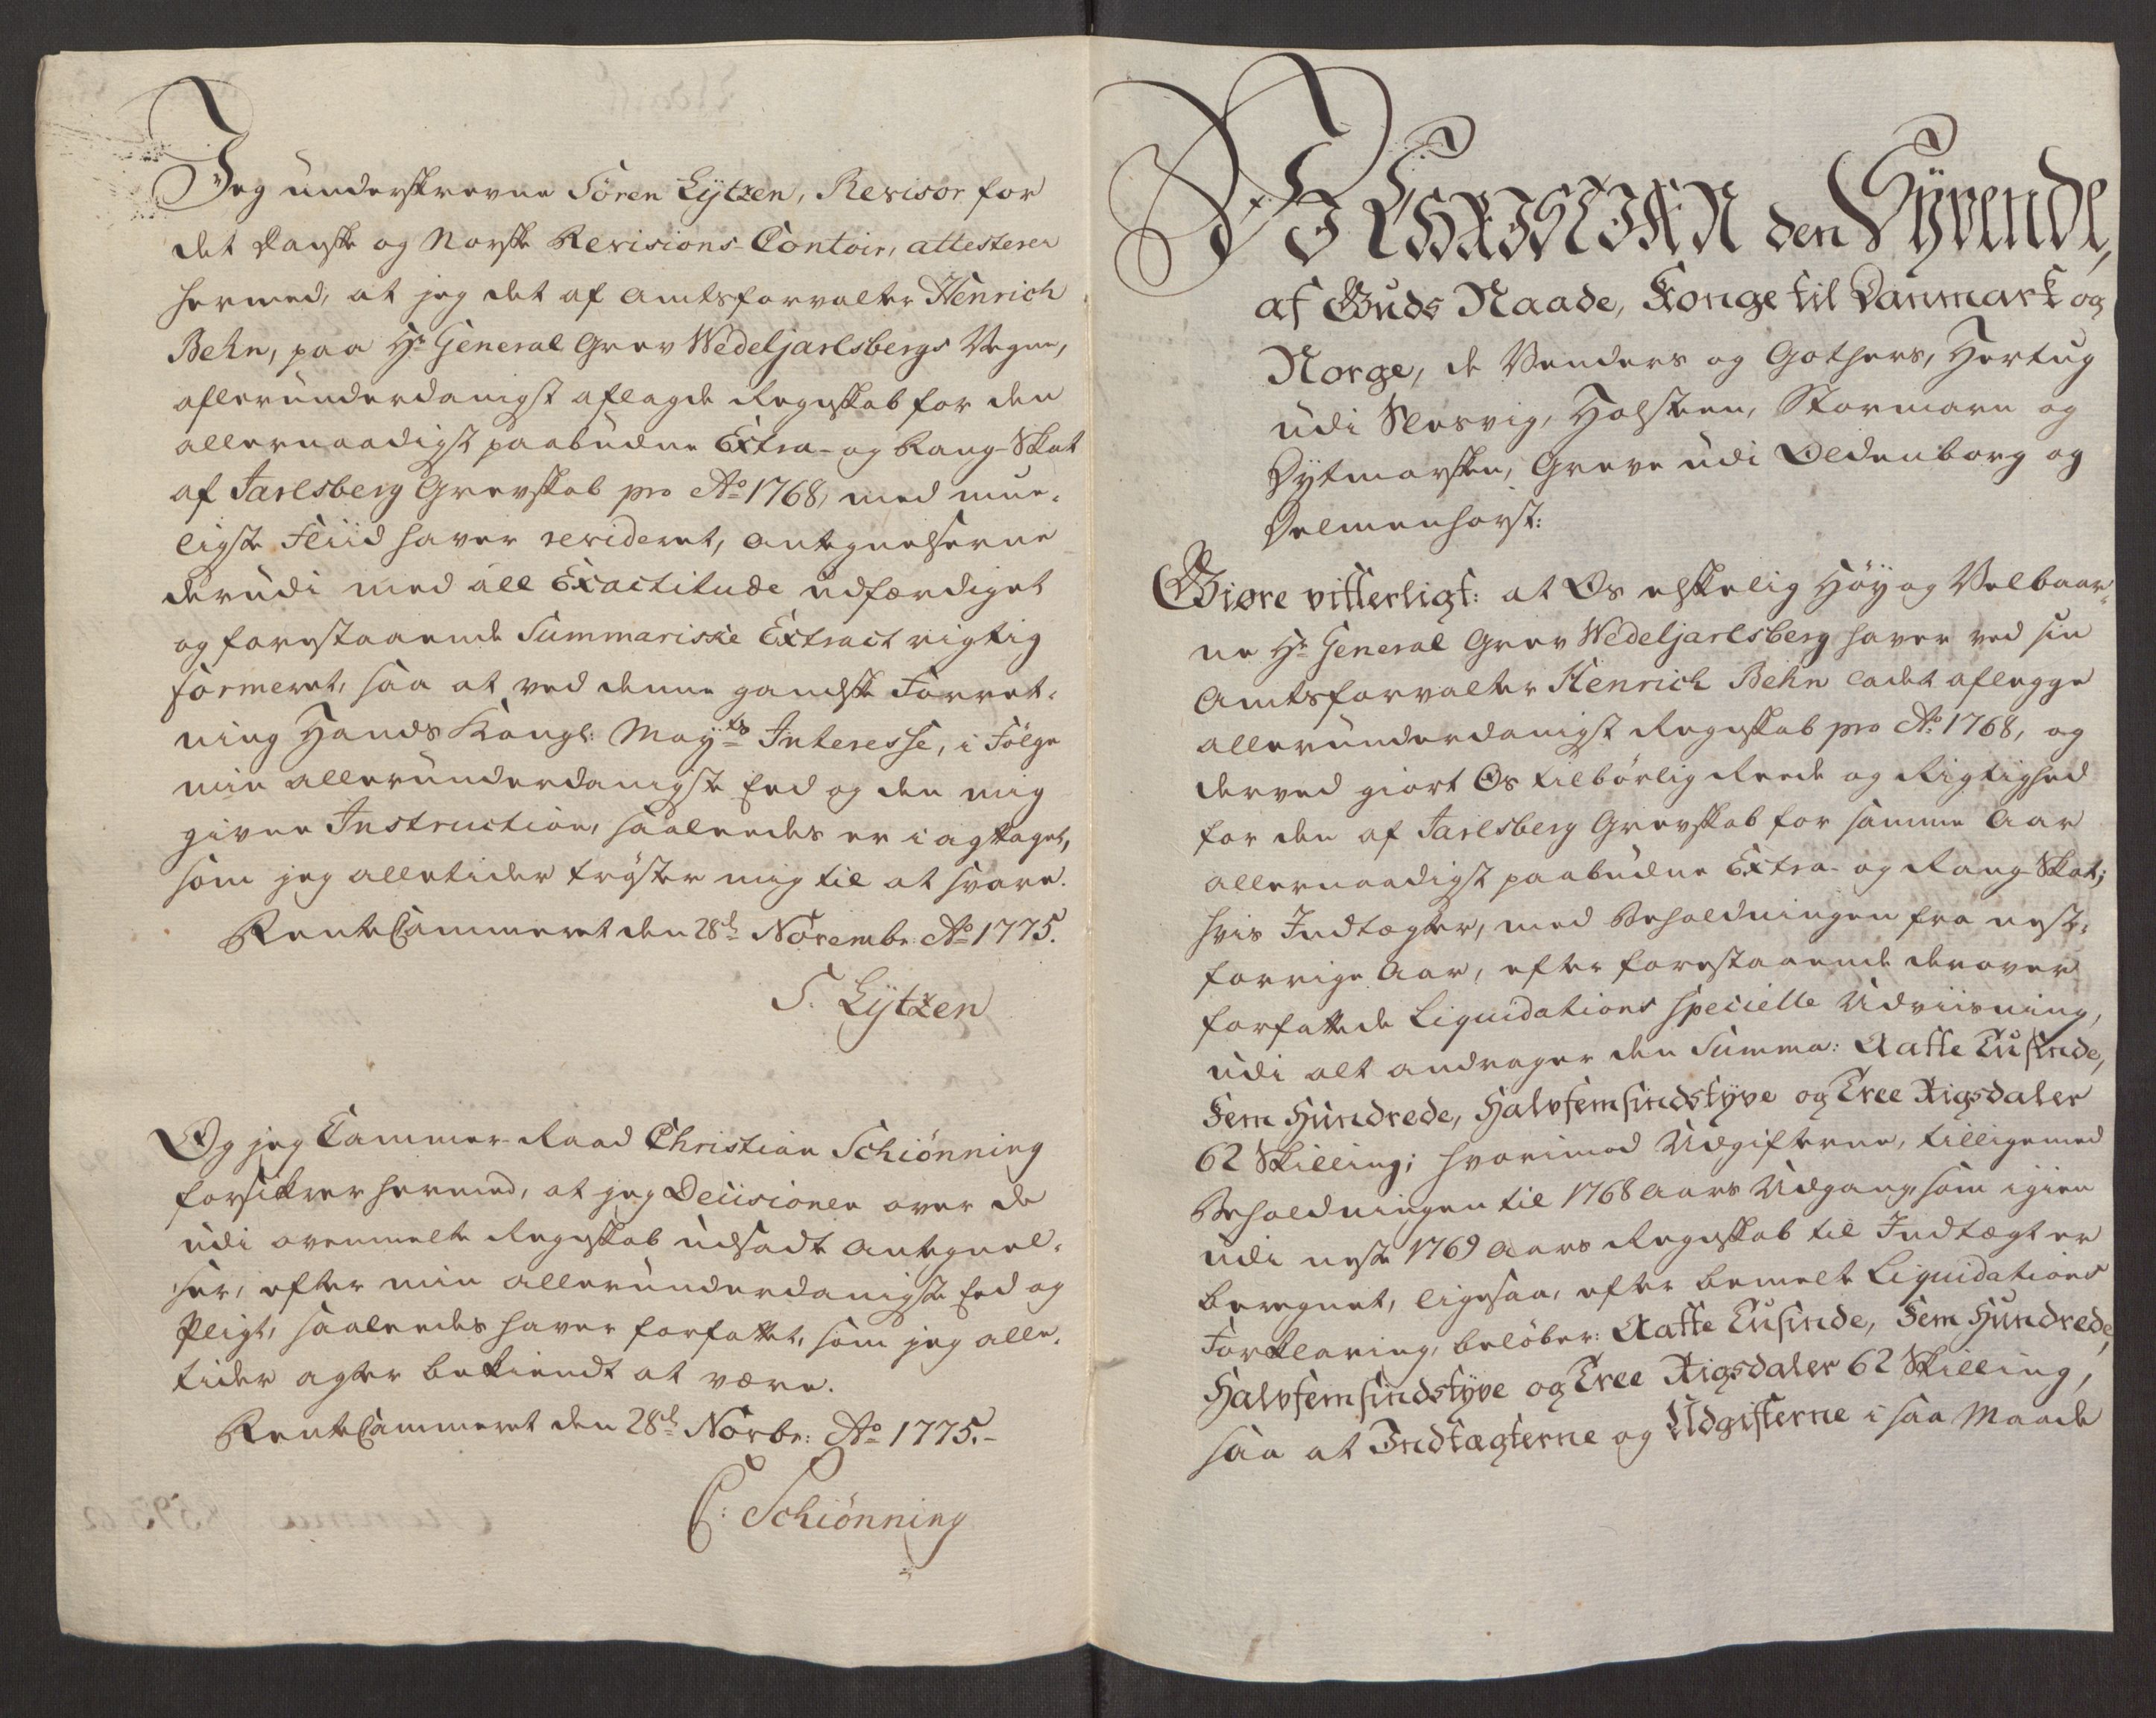 Jeg underskrevne Sören Lÿtzen, Revisor for
det Danske og Norske Revisions-Contoir, attesterer
hermed, at jeg det af Amtsforvalter Henrich
Behn, paa Hr. General Grev Wedeljarlsbergs Vegne,
allerunderdanigst aflagde Regnskab for den
allernaadigst paabudne Extra- og Rang-Skat
af Jarlsberg Grevskab pro Ao 1768, med mue-
ligste Fliid haver revideret, Antegnelserne
derudi med all Exactitude udfærdiget
og forestaaende Summariske Extract rigtig
formeret, saa at ved denne gandske Forret-
ning Hands Kongl: Mayts Interesse, i Fölge
min allerunderdanigste Eed og den mig
givne Instruction, saaledes er i agttaget,
som jeg alletider tröster mig til at svare.
RenteCammeret den 28de Novembr: Ao 1775.
S. Lÿtzen
Og jeg Cammer-Raad Christian Schiönning
forsikrer hermed, at jeg Decisionen over de
udi ovenmelte Regnskab udsadte Antegnel-
ser, efter min allerunderdanigste Eed og
Pligt, saaledes haver forfattet, som jeg alle-
tider agter bekiendt at være.
RenteCammeret den 28de Novbr: Ao 1775.-
C: Schiönning
VI CHRISTIAN den Sÿvende,
af Guds Naade, Konge til Danmark og
Norge, de Venders og Gothers, Hertug
udi Slesvig, Holsteen, Stormarn og
Dÿtmarsken, Greve udi Oldenborg og
Delmenhorst:
Giøre vitterligt: at Os elskelig Höÿ og Velbaar-
ne Hr. General Grev Wedeljarlsberg haver ved sin
Amtsforvalter Henrich Behn ladet aflegge
allerunderdanigst Regnskab pro Ao 1768, og
derved giort Os tilbörlig Reede og Rigtighed
for den af Jarlsberg Grevskab for samme Aar
allernaadigst paabudne Extra- og Rang-Skat;
hvis Indtægter, med Beholdningen fra nest-
forrige Aar, efter forestaaende derover
forfattede Liquidations specielle Udviisning,
udi alt andrager den Summa: Aatte Tusinde,
Fem Hundrede, Halvfemsindstÿve og Tree Rigsdaler
62 Skilling; hvorimod Udgifterne, tilligemed
Beholdningen til 1768 Aars Udgang, som igien
udi neste 1769 Aars Regnskab til Indtægt er
beregnet, ligesaa, efter bemelte Liquidations
Forklaring, belöber: Aatte Tusinde, Fem Hundrede,
Halvfemsindstÿve og Tree Rigsdaler 62 Skilling,
saa at Indtægterne og Udgifterne i saa Maade